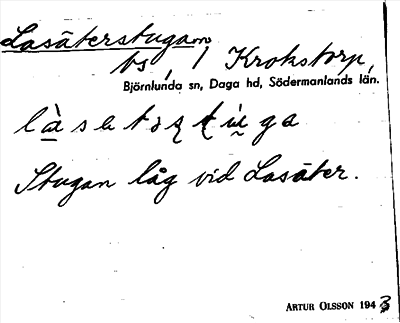 Lasäterstugan
ts, 1 Krokstorp,
Björnlunda sn, Daga hd, Södermanlands län.
Stugan låg vid Lasäter.
ARTUR OLSSON 1943